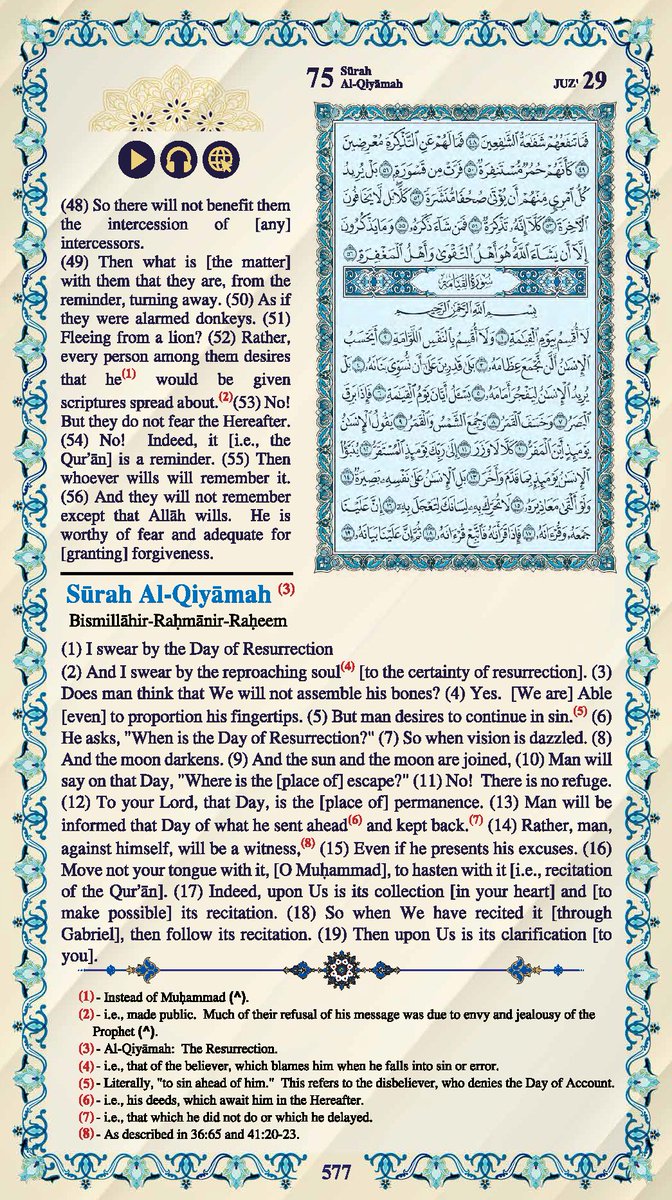 75 Sūrah
Al-Qiyāmah
JUZ' 29
فَمَا تَنفَعُهُمْ شَفَٰعَةُ ٱلشَّٰفِعِينَ ٤٨ فَمَا لَهُمْ عَنِ ٱلتَّذْكِرَةِ مُعْرِضِينَ
٤٩ كَأَنَّهُمْ حُمُرٌ مُّسْتَنفِرَةٌ ٥٠ فَرَّتْ مِن قَسْوَرَةٍۭ ٥١ بَلْ يُرِيدُ
كُلُّ ٱمْرِئٍ مِّنْهُمْ أَن يُؤْتَىٰ صُحُفًا مُّنَشَّرَةً ٥٢ كَلَّا ۖ بَل لَّا يَخَافُونَ
ٱلْءَاخِرَةَ ٥٣ كَلَّآ إِنَّهُۥ تَذْكِرَةٌ ٥٤ فَمَن شَآءَ ذَكَرَهُۥ ٥٥ وَمَا يَذْكُرُونَ
إِلَّآ أَن يَشَآءَ ٱللَّهُ ۚ هُوَ أَهْلُ ٱلتَّقْوَىٰ وَأَهْلُ ٱلْمَغْفِرَةِ ٥٦
سُورَةُ القِيَامَةِ
بِسْمِ ٱللَّهِ ٱلرَّحْمَٰنِ ٱلرَّحِيمِ
لَآ أُقْسِمُ بِيَوْمِ ٱلْقِيَٰمَةِ ١ وَلَآ أُقْسِمُ بِٱلنَّفْسِ ٱللَّوَّامَةِ ٢ أَيَحْسَبُ
ٱلْإِنسَٰنُ أَلَّن نَّجْمَعَ عِظَامَهُۥ ٣ بَلَىٰ قَٰدِرِينَ عَلَىٰٓ أَن نُّسَوِّىَ بَنَانَهُۥ ٤ بَلْ
يُرِيدُ ٱلْإِنسَٰنُ لِيَفْجُرَ أَمَامَهُۥ ٥ يَسْـَٔلُ أَيَّانَ يَوْمُ ٱلْقِيَٰمَةِ ٦ فَإِذَا بَرِقَ
ٱلْبَصَرُ ٧ وَخَسَفَ ٱلْقَمَرُ ٨ وَجُمِعَ ٱلشَّمْسُ وَٱلْقَمَرُ ٩ يَقُولُ ٱلْإِنسَٰنُ
يَوْمَئِذٍ أَيْنَ ٱلْمَفَرُّ ١٠ كَلَّا لَا وَزَرَ ١١ إِلَىٰ رَبِّكَ يَوْمَئِذٍ ٱلْمُسْتَقَرُّ ١٢ يُنَبَّؤُا۟
ٱلْإِنسَٰنُ يَوْمَئِذٍۭ بِمَا قَدَّمَ وَأَخَّرَ ١٣ بَلِ ٱلْإِنسَٰنُ عَلَىٰ نَفْسِهِۦ بَصِيرَةٌ ١٤
وَلَوْ أَلْقَىٰ مَعَاذِيرَهُۥ ١٥ لَا تُحَرِّكْ بِهِۦ لِسَانَكَ لِتَعْجَلَ بِهِۦٓ ١٦ إِنَّ عَلَيْنَا
جَمْعَهُۥ وَقُرْءَانَهُۥ ١٧ فَإِذَا قَرَأْنَٰهُ فَٱتَّبِعْ قُرْءَانَهُۥ ١٨ ثُمَّ إِنَّ عَلَيْنَا بَيَانَهُۥ ١٩
(48) So there will not benefit them
the intercession of [any]
intercessors.
(49) Then what is [the matter]
with them that they are, from the
reminder, turning away. (50) As if
they were alarmed donkeys. (51)
Fleeing from a lion? (52) Rather,
every person among them desires
that he(1) would be given
scriptures spread about.(2)(53) No!
But they do not fear the Hereafter.
(54) No! Indeed, it [i.e., the
Qur’ān] is a reminder. (55) Then
whoever wills will remember it.
(56) And they will not remember
except that Allāh wills. He is
worthy of fear and adequate for
[granting] forgiveness.
Sūrah Al-Qiyāmah (3)
Bismillāhir-Raḥmānir-Raḥeem
(1) I swear by the Day of Resurrection
(2) And I swear by the reproaching soul(4) [to the certainty of resurrection]. (3)
Does man think that We will not assemble his bones? (4) Yes. [We are] Able
[even] to proportion his fingertips. (5) But man desires to continue in sin.(5) (6)
He asks, "When is the Day of Resurrection?" (7) So when vision is dazzled. (8)
And the moon darkens. (9) And the sun and the moon are joined, (10) Man will
say on that Day, "Where is the [place of] escape?" (11) No! There is no refuge.
(12) To your Lord, that Day, is the [place of] permanence. (13) Man will be
informed that Day of what he sent ahead(6) and kept back.(7) (14) Rather, man,
against himself, will be a witness,(8) (15) Even if he presents his excuses. (16)
Move not your tongue with it, [O Muḥammad], to hasten with it [i.e., recitation
of the Qur’ān]. (17) Indeed, upon Us is its collection [in your heart] and [to
make possible] its recitation. (18) So when We have recited it [through
Gabriel], then follow its recitation. (19) Then upon Us is its clarification [to
you].
(1) - Instead of Muḥammad (^).
(2) - i.e., made public. Much of their refusal of his message was due to envy and jealousy of the
Prophet (^).
(3) - Al-Qiyāmah: The Resurrection.
(4) - i.e., that of the believer, which blames him when he falls into sin or error.
(5) - Literally, "to sin ahead of him." This refers to the disbeliever, who denies the Day of Account.
(6) - i.e., his deeds, which await him in the Hereafter.
(7) - i.e., that which he did not do or which he delayed.
(8) - As described in 36:65 and 41:20-23.
577